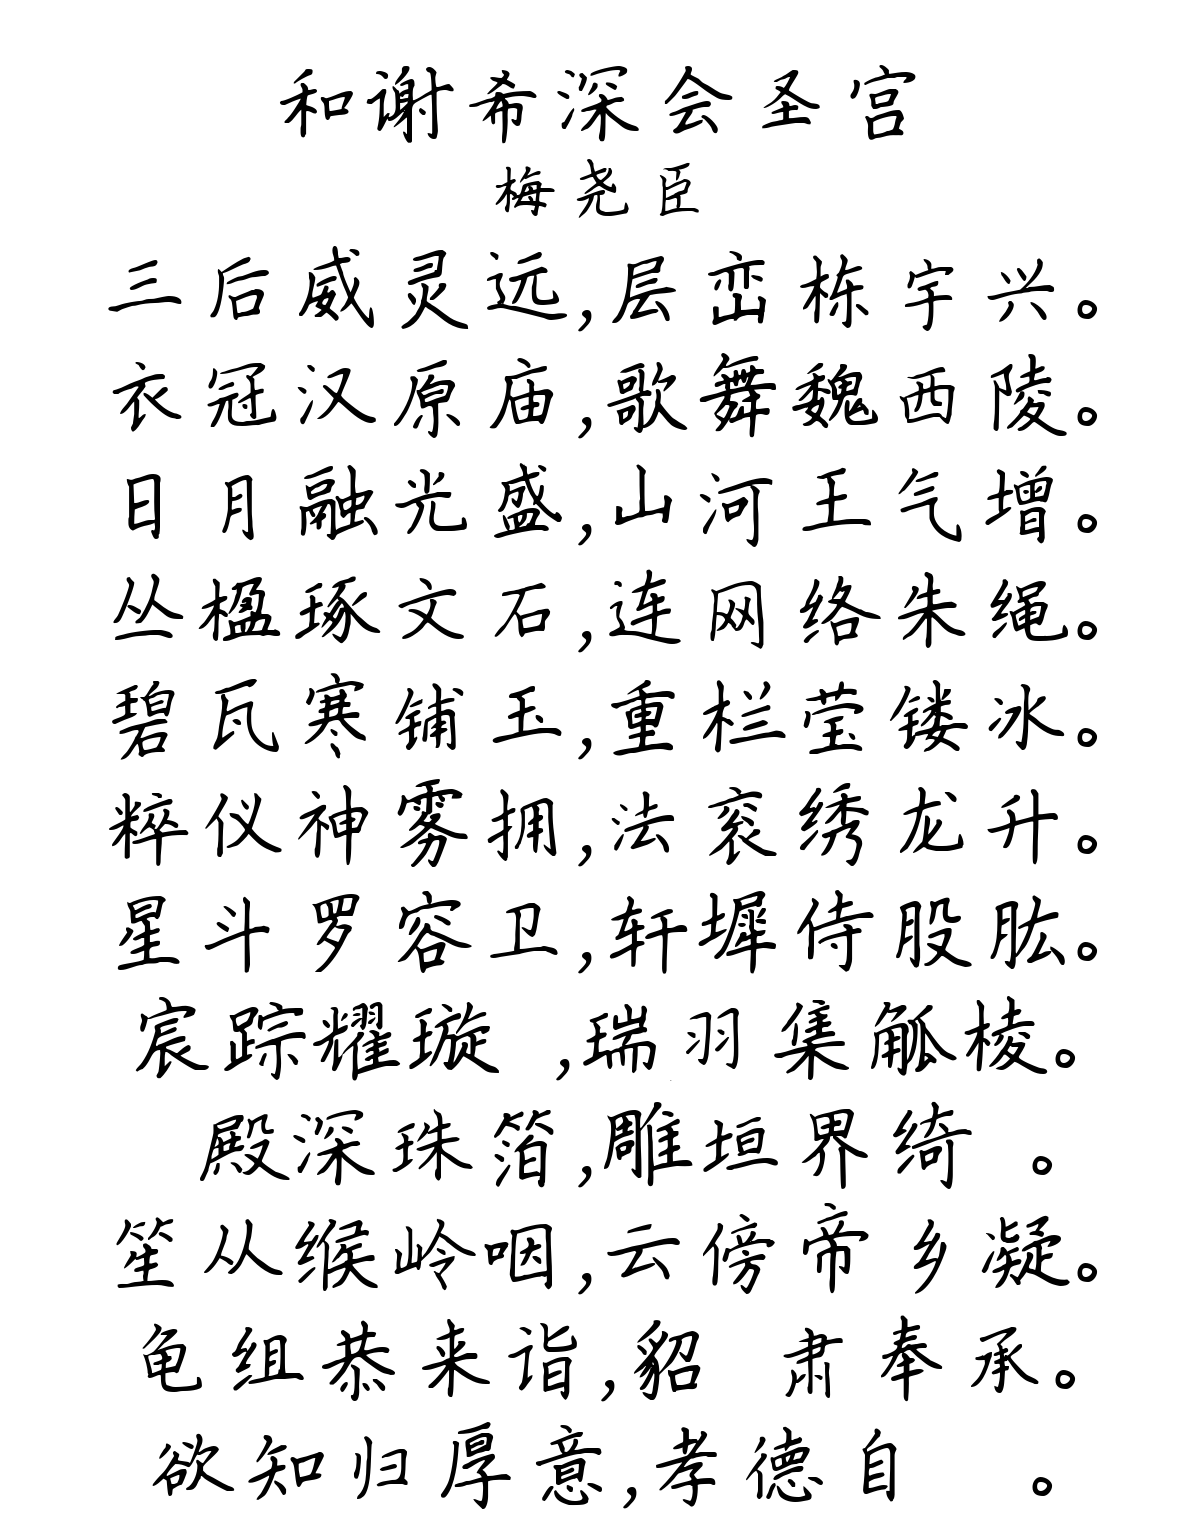 和谢希深会圣宫
梅尧臣
三后威灵远,层峦栋宇兴。
衣冠汉原庙,歌舞魏西陵。
日月融光盛,山河王气增。
丛楹琢文石,连网络朱绳。
碧瓦寒铺玉,重栏莹镂冰。
粹仪神雾拥,法衮绣龙升。
星斗罗容卫,轩墀侍股肱。
宸踪耀璇 ,瑞羽集觚棱。
殿深珠箔,雕垣界绮 。
笙从缑岭咽,云傍帝乡凝。
龟组恭来诣,貂 肃奉承。
欲知归厚意,孝德自 。